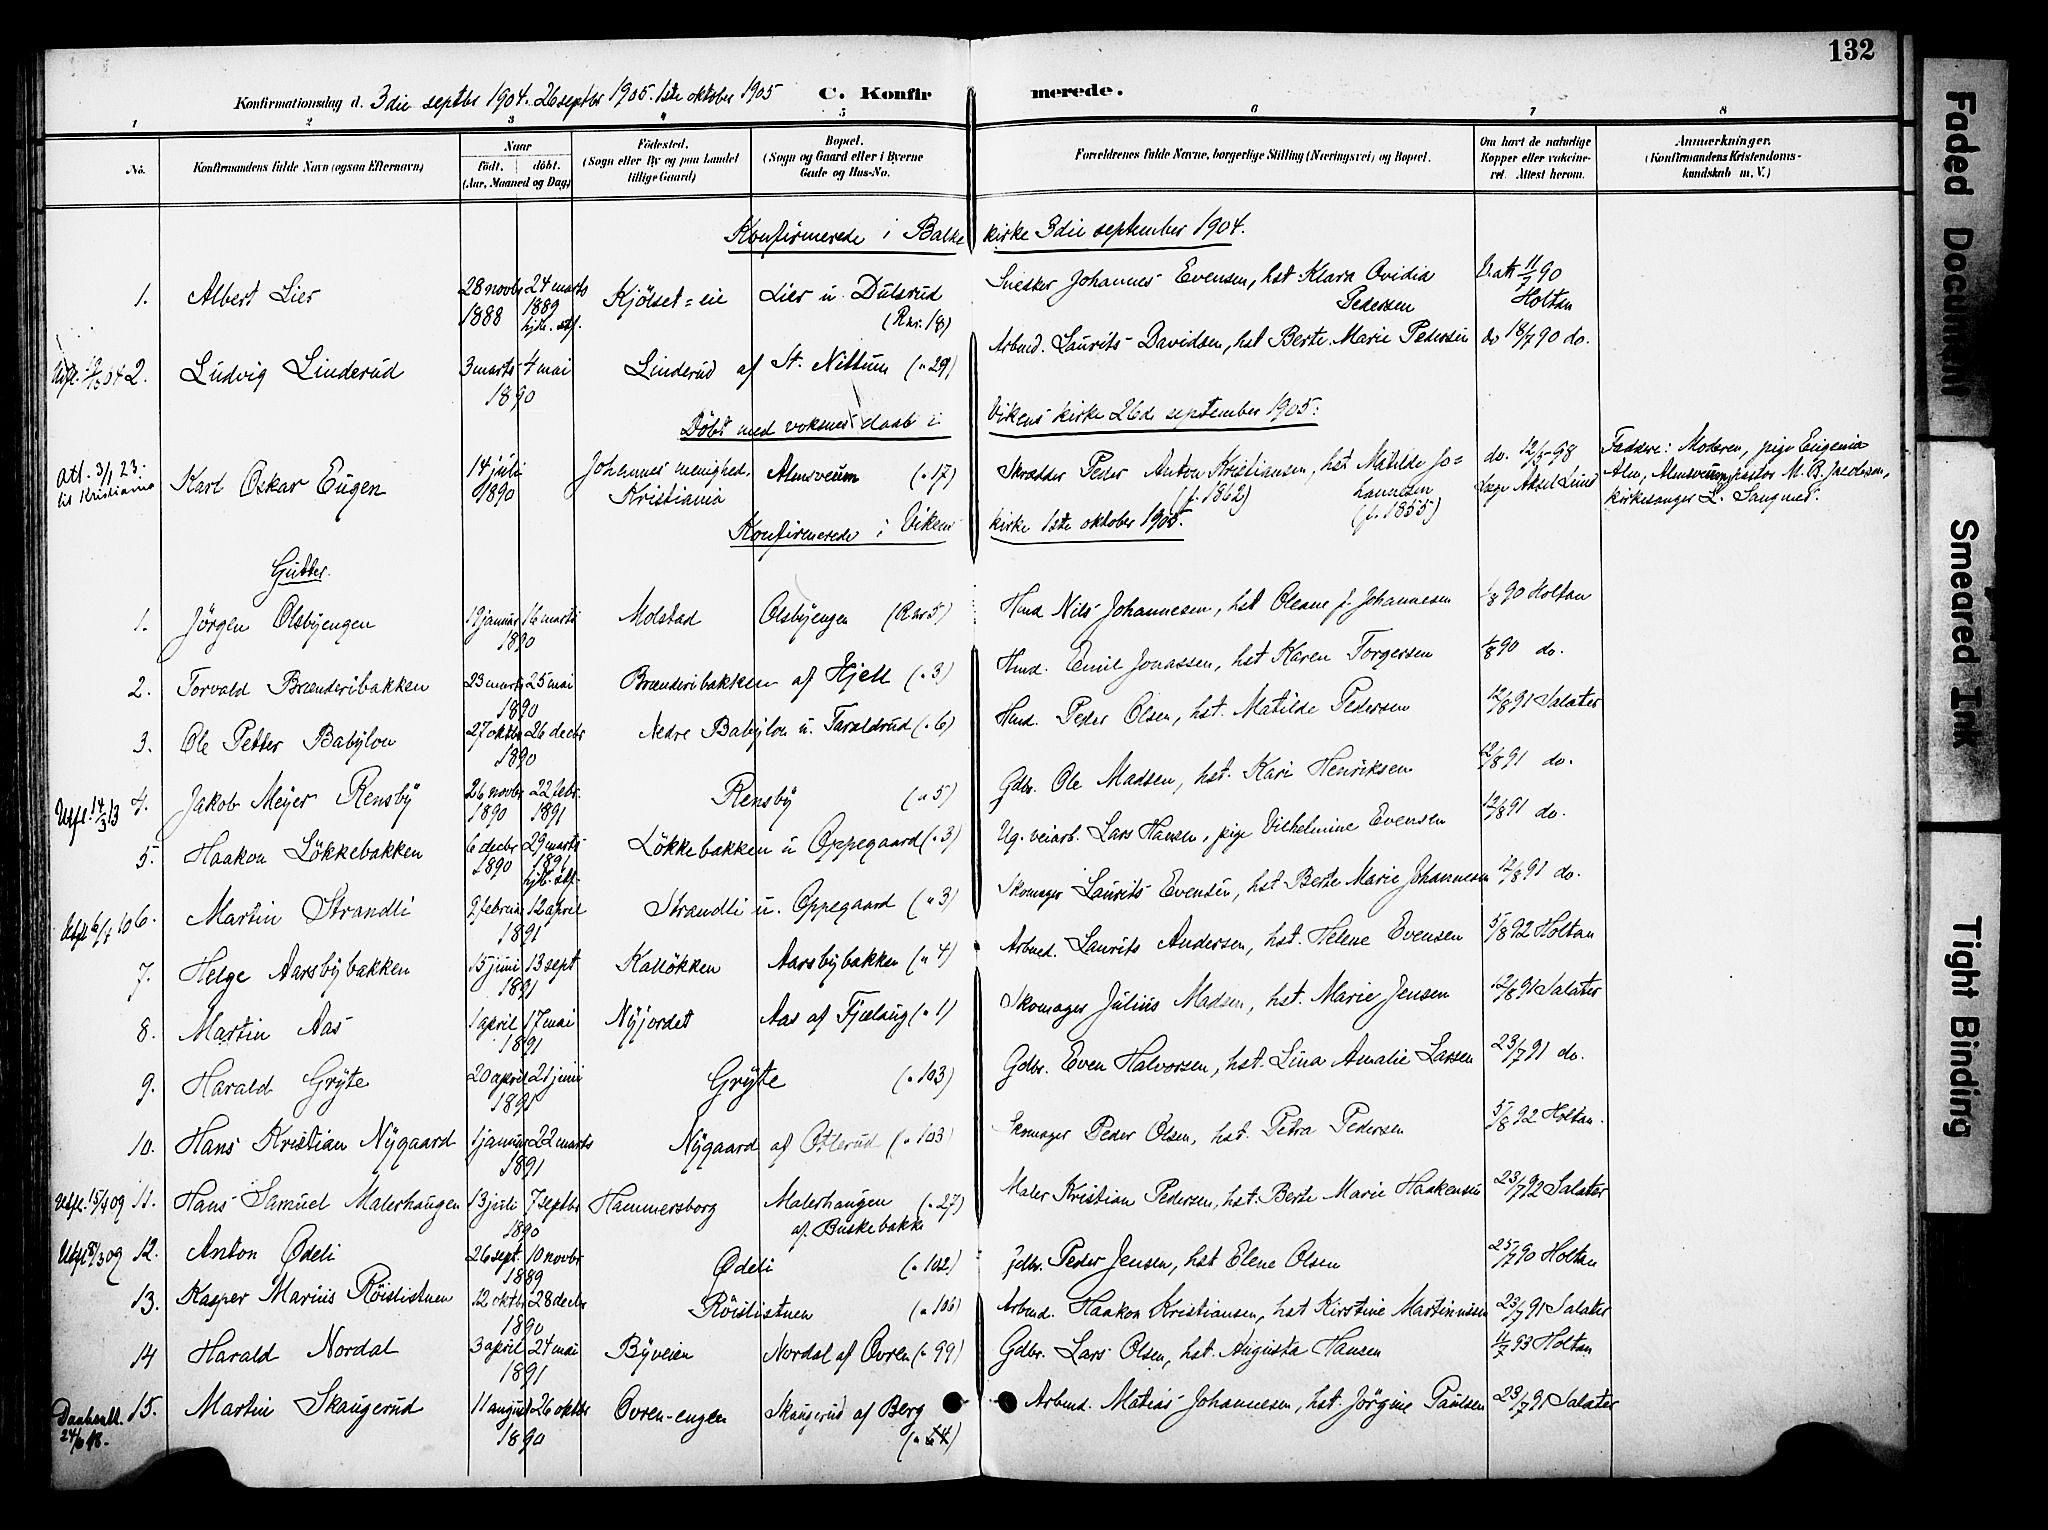 132
Konfirmationsdag d. 3die septbr 1904. 26 septbr 1905. 1ste oktober 1905 C. Konfirmerede.
1 2 3 4 5 6 7 8
No. Konfirmandens fulde Navn (ogsaa Efternavn) Naar födt. döbt. (Aar, Maaned og Dag) Födested. (Sogn eller By og paa Landet tillige Gaard) Bopæl. (Sogn og Gaard eller i Byerne Gade og Hus-No. Forældrenes fulde Navne, borgerlige Stilling (Næringsvei) og Bopæl. Om havt de naturlige Kopper eller vakcineret. Attest herom. Anmærkninger. (Konfirmandens Kristendomskundskab m. V.)
Konfirmerede i Balke kirke 3die september 1904.
1. Albert Lier 28 novbr 1888 24 marts 1889 hjd. stf. Kjölset-eie Lier u. Dulsrud (Rnr. 18) Snekker Johannes Evensen, hst Klara Ovidia Pedersen Vatt 11/7 90 Holtan
2. Ludvig Linderud 3 marts 4 mai 1890 Linderud af St. Nettum („ 29) Arbmd. Laurits Davidsen, hst Berte Marie Pedersen do 18/7 90 do.
Döbt med voksnes daab i Vikens kirke 26de september 1905:
Att. 3/1 23. til Kristiania Karl Oskar Eugen 14 juli 1890 Johannes menighed, Kristiania Almsveum („ 17) Skrædder Peder Anton Kristiansen, hst Matilde Johannesen (f. 1862) (f. 1855) do. 12/5-98 Læge Aksel Lund Faddere: Moderen, pige Eugenia Alm, Almsveum, pastor M. B. Jacobsen, kirkesanger L. Sangnes.
Konfirmerede i Vikens kirke 1ste oktober 1905.
Gutter.
1. Jörgen Olsbyengen 19 januar 16 marts 1890 Molstad Olsbyengen (Rnr 5) Hmd Nils Johannesen, hst Oleane f. Johannesen 1/8 90 Holtan
2. Torvald Brænderibakken 23 marts 25 mai 1890 Brænderibakken af Hjell („ 3) Hmd. Emil Jonassen, hst Karen Torgersen 1/8 90 do.
3. Ole Petter Babylon 27 oktbr 26 decbr 1890 Nedre Babylon u. Taraldrud („ 6) Hmd. Peder Olsen, hst. Matilde Pedersen 12/8 91 Salater
Utfl. 14/3 13 4. Jakob Meyer Rensby 26 novbr 1890 22 febr. 1891 Rensby („ 5) Gdbr. Ole Madsen, hst. Kari Henriksen 12/8 91 do.
5. Haakon Lökkebakken 6 decbr 1890 29 marts 1891 hjd. stf. Lökkebakken u Oppegaard („ 3) Ug. veiarb. Lars Hansen, pige Vilhelmine Evensen 12/8 91 do.
Utfl 6/7 10 6. Martin Strandli 9 februar 12 april 1891 Strandli u. Oppegaard („ 3) Skomager Laurits Evensen, hst Berte Marie Johannesen 12/8 91 do.
7. Helge Aarsbybakken 15 juni 13 sept 1891 Kallökken Aarsbybakken („ 4) Arbmd. Laurits Andersen, hst. Helene Evensen 5/8 92 Holtan
8. Martin Aas 1 april 17 mai 1891 Nyjordet Aas af Fjælang („ 1) Skomager Julius Madsen, hst. Marie Jensen 12/8 91 Salater
9. Harald Gryte 20 april 21 juni 1891 Gryte („ 103) Gdbr. Even Halvorsen, hst. Lina Amalie Larsen 23/7 91 do.
10. Hans Kristian Nygaard 1 januar 22 marts 1891 Nygaard af Osterud („ 103) Skomager Peder Olsen, hst. Petra Pedersen 5/8 92 Holtan.
Utfl. 15/4 09 11. Hans Samuel Malerhaugen 13 juli 7 septbr 1890 Hammersborg Malerhaugen af Buskebakke („ 27) Maler Kristian Pedersen, hst. Berte Marie Haakensen 23/7 92 Salater
Utfl 8/3 09 12. Anton Ødeli 26 sept. 10 novbr 1889 Ødeli („ 102) Gdbr. Peder Jensen, hst Elene Olsen 25/7 90 Holtan
13. Kasper Marius Röislistuen 12 oktbr 28 decbr 1890 Röislistuen („ 106) Arbmd. Haakon Kristiansen, hst Kirstine Martinussen 23/7 91 Salater
14 Harald Nordal 3 april 24 mai 1891 Byveien Nordal af Ovren („ 99) Gdbr. Lars Olsen, hst. Augusta Hansen 11/7 93 Holtan
15. Martin Skaugerud 11 august 26 oktbr 1890 Ovren-engen Skaugerud af Berg Arbmd. Matias Johannesen, hst. Jörgine Paulsen 23/7 91 Salater
Faded Document
Smeared Ink
Tight Binding